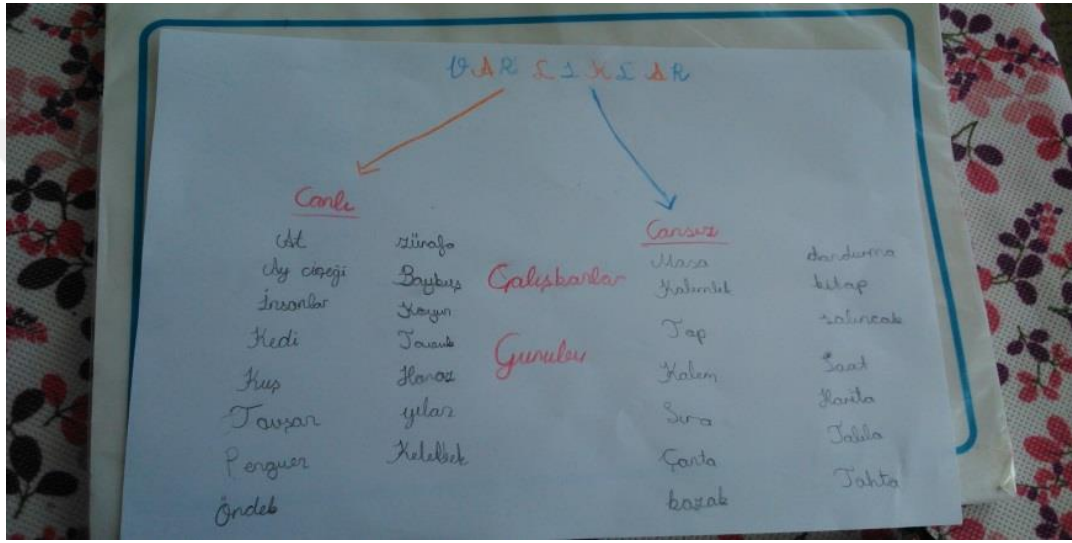 VARLIKLAR
Canlı
At
Ay çiçeği
İnsanlar
Kedi
Kuş
Tavşan
Penguen
Öndek
zürafa
Baykuş
Koyun
Tavuk
Horoz
yılan
Kelebek
Çalışkanlar
Gurubu
Cansız
Masa
Kalemlik
Top
Kalem
Sıra
Çanta
kazak
dondurma
kitap
salıncak
Saat
Harita
Tablo
Tahta